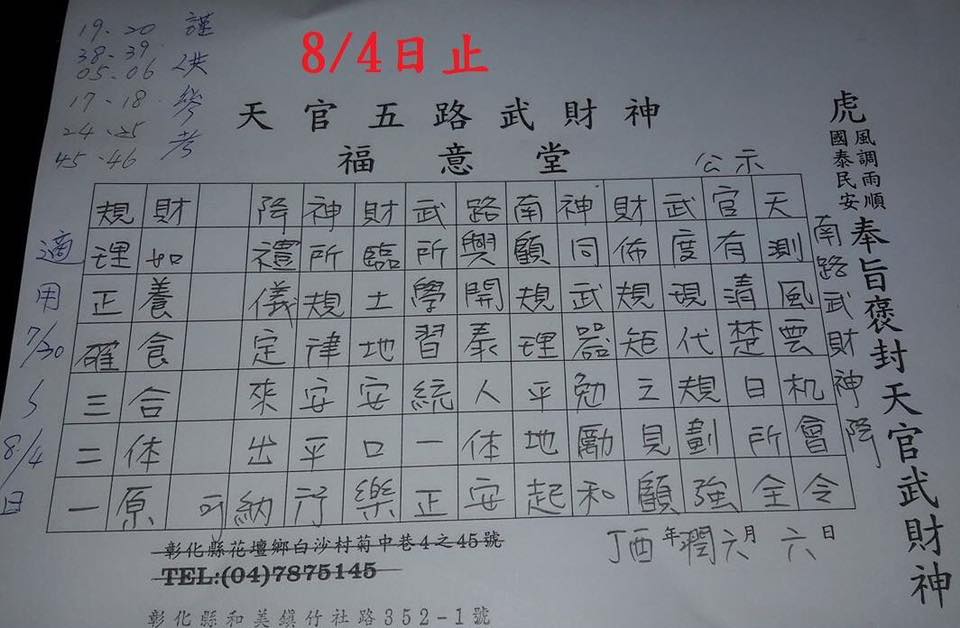 8/4日止
虎
風調雨順
國泰民安
奉旨褒封天官武財神
南路武財神降
天官五路武財神
福意堂
公示
天測風雲机會令
官有清楚日所全
武度現代規劃強
財佈規矩之見顧
神同武器勉勵和
南顧規理平地起
路興開人体安
武所學習統一正
財臨土地安口樂
神所規律安平行
降禮儀定來出納
可
財如養食合体原
規理正確三二一
謹供參考
19-20
38-39
05-06
17-18
24-25
45-46
適用7/30~8/4日
丁酉年潤六月六日
彰化縣花壇鄉白沙村菊中巷4之45號
TEL:(04)7875145
彰化縣和美鎮竹社路352-1號